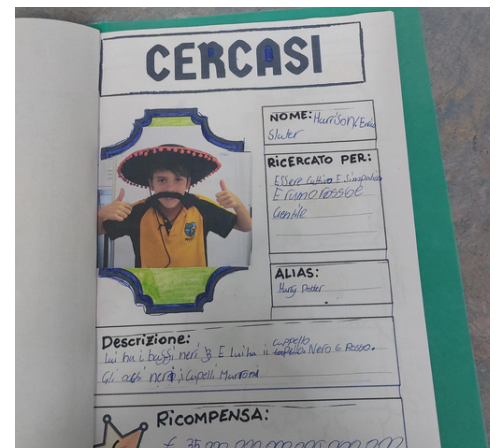 CERCASI
NOME: Harrison
Slater
RICERCATO PER:
Essere Cattivo E Simpatico
E rumoroso E
Gentile
ALIAS:
Harry Potter
Descrizione:
Lui ha i baffi neri E Lui ha il cappello Nero e Rosso.
Gli occhi neri, i Capelli Marroni
RICOMPENSA: